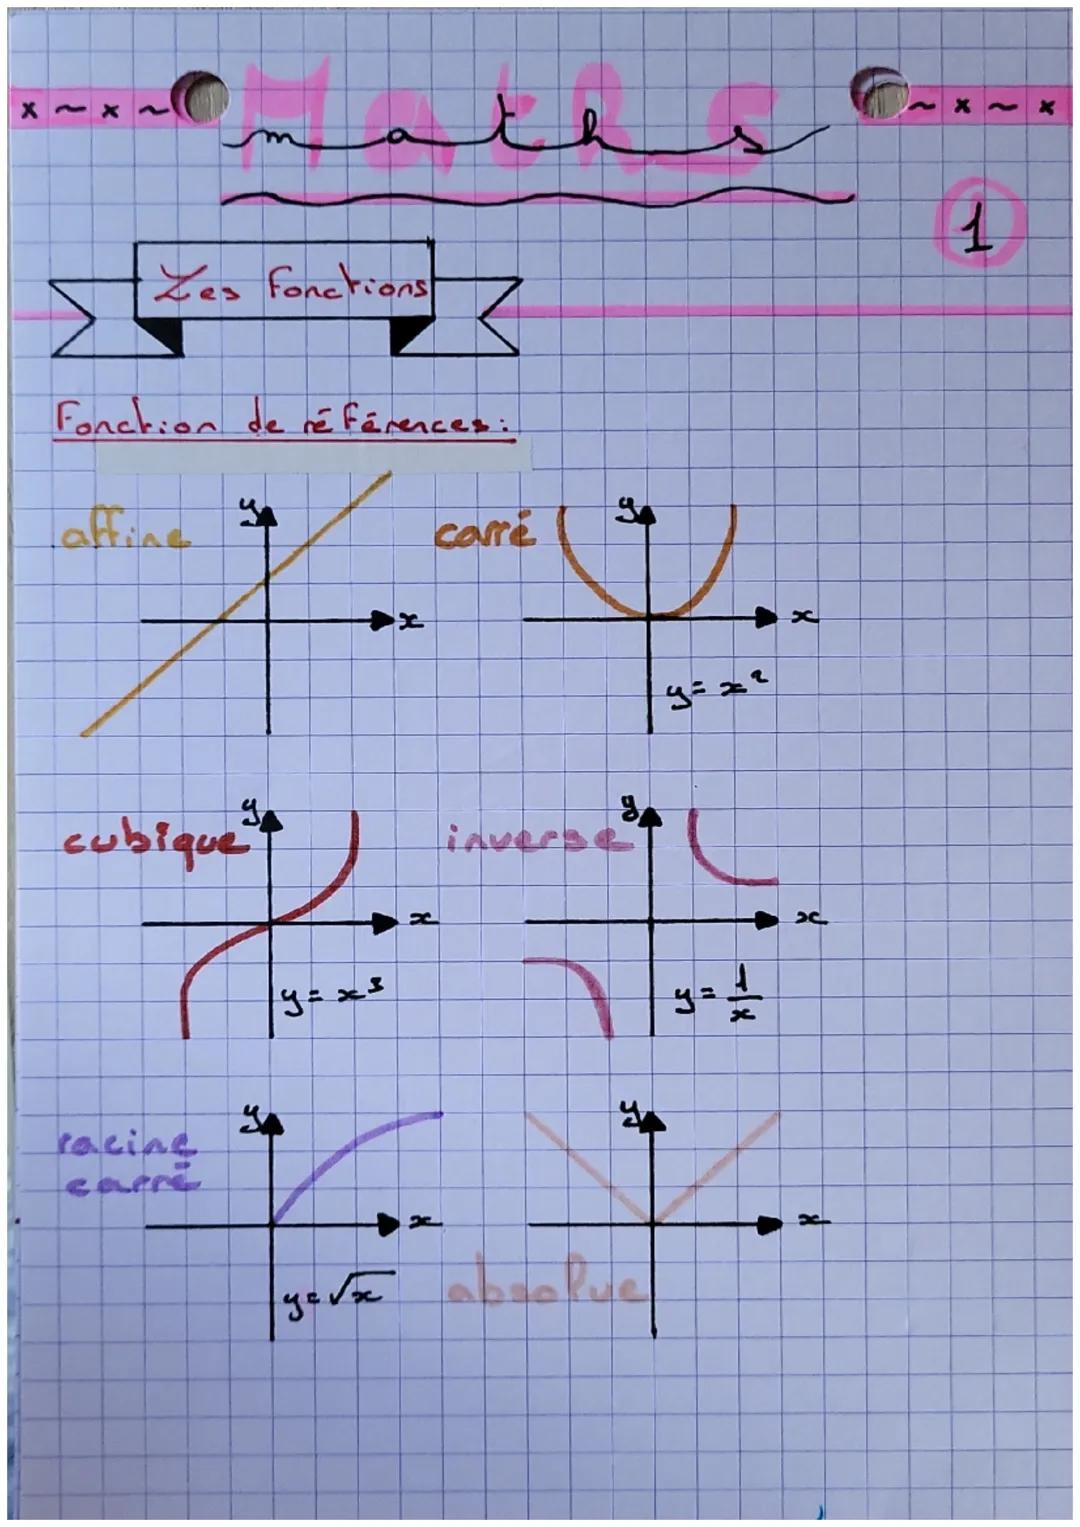 x ~ x ~
Maths
maths
~ x ~ x
1
Les fonctions
Fonction de références :
affine
y
x
carré
y
x
y = x²
cubique
y
x
y = x³
inverse
y
x
y = 1/x
racine
carré
y
x
y = √x
y
x
absolue